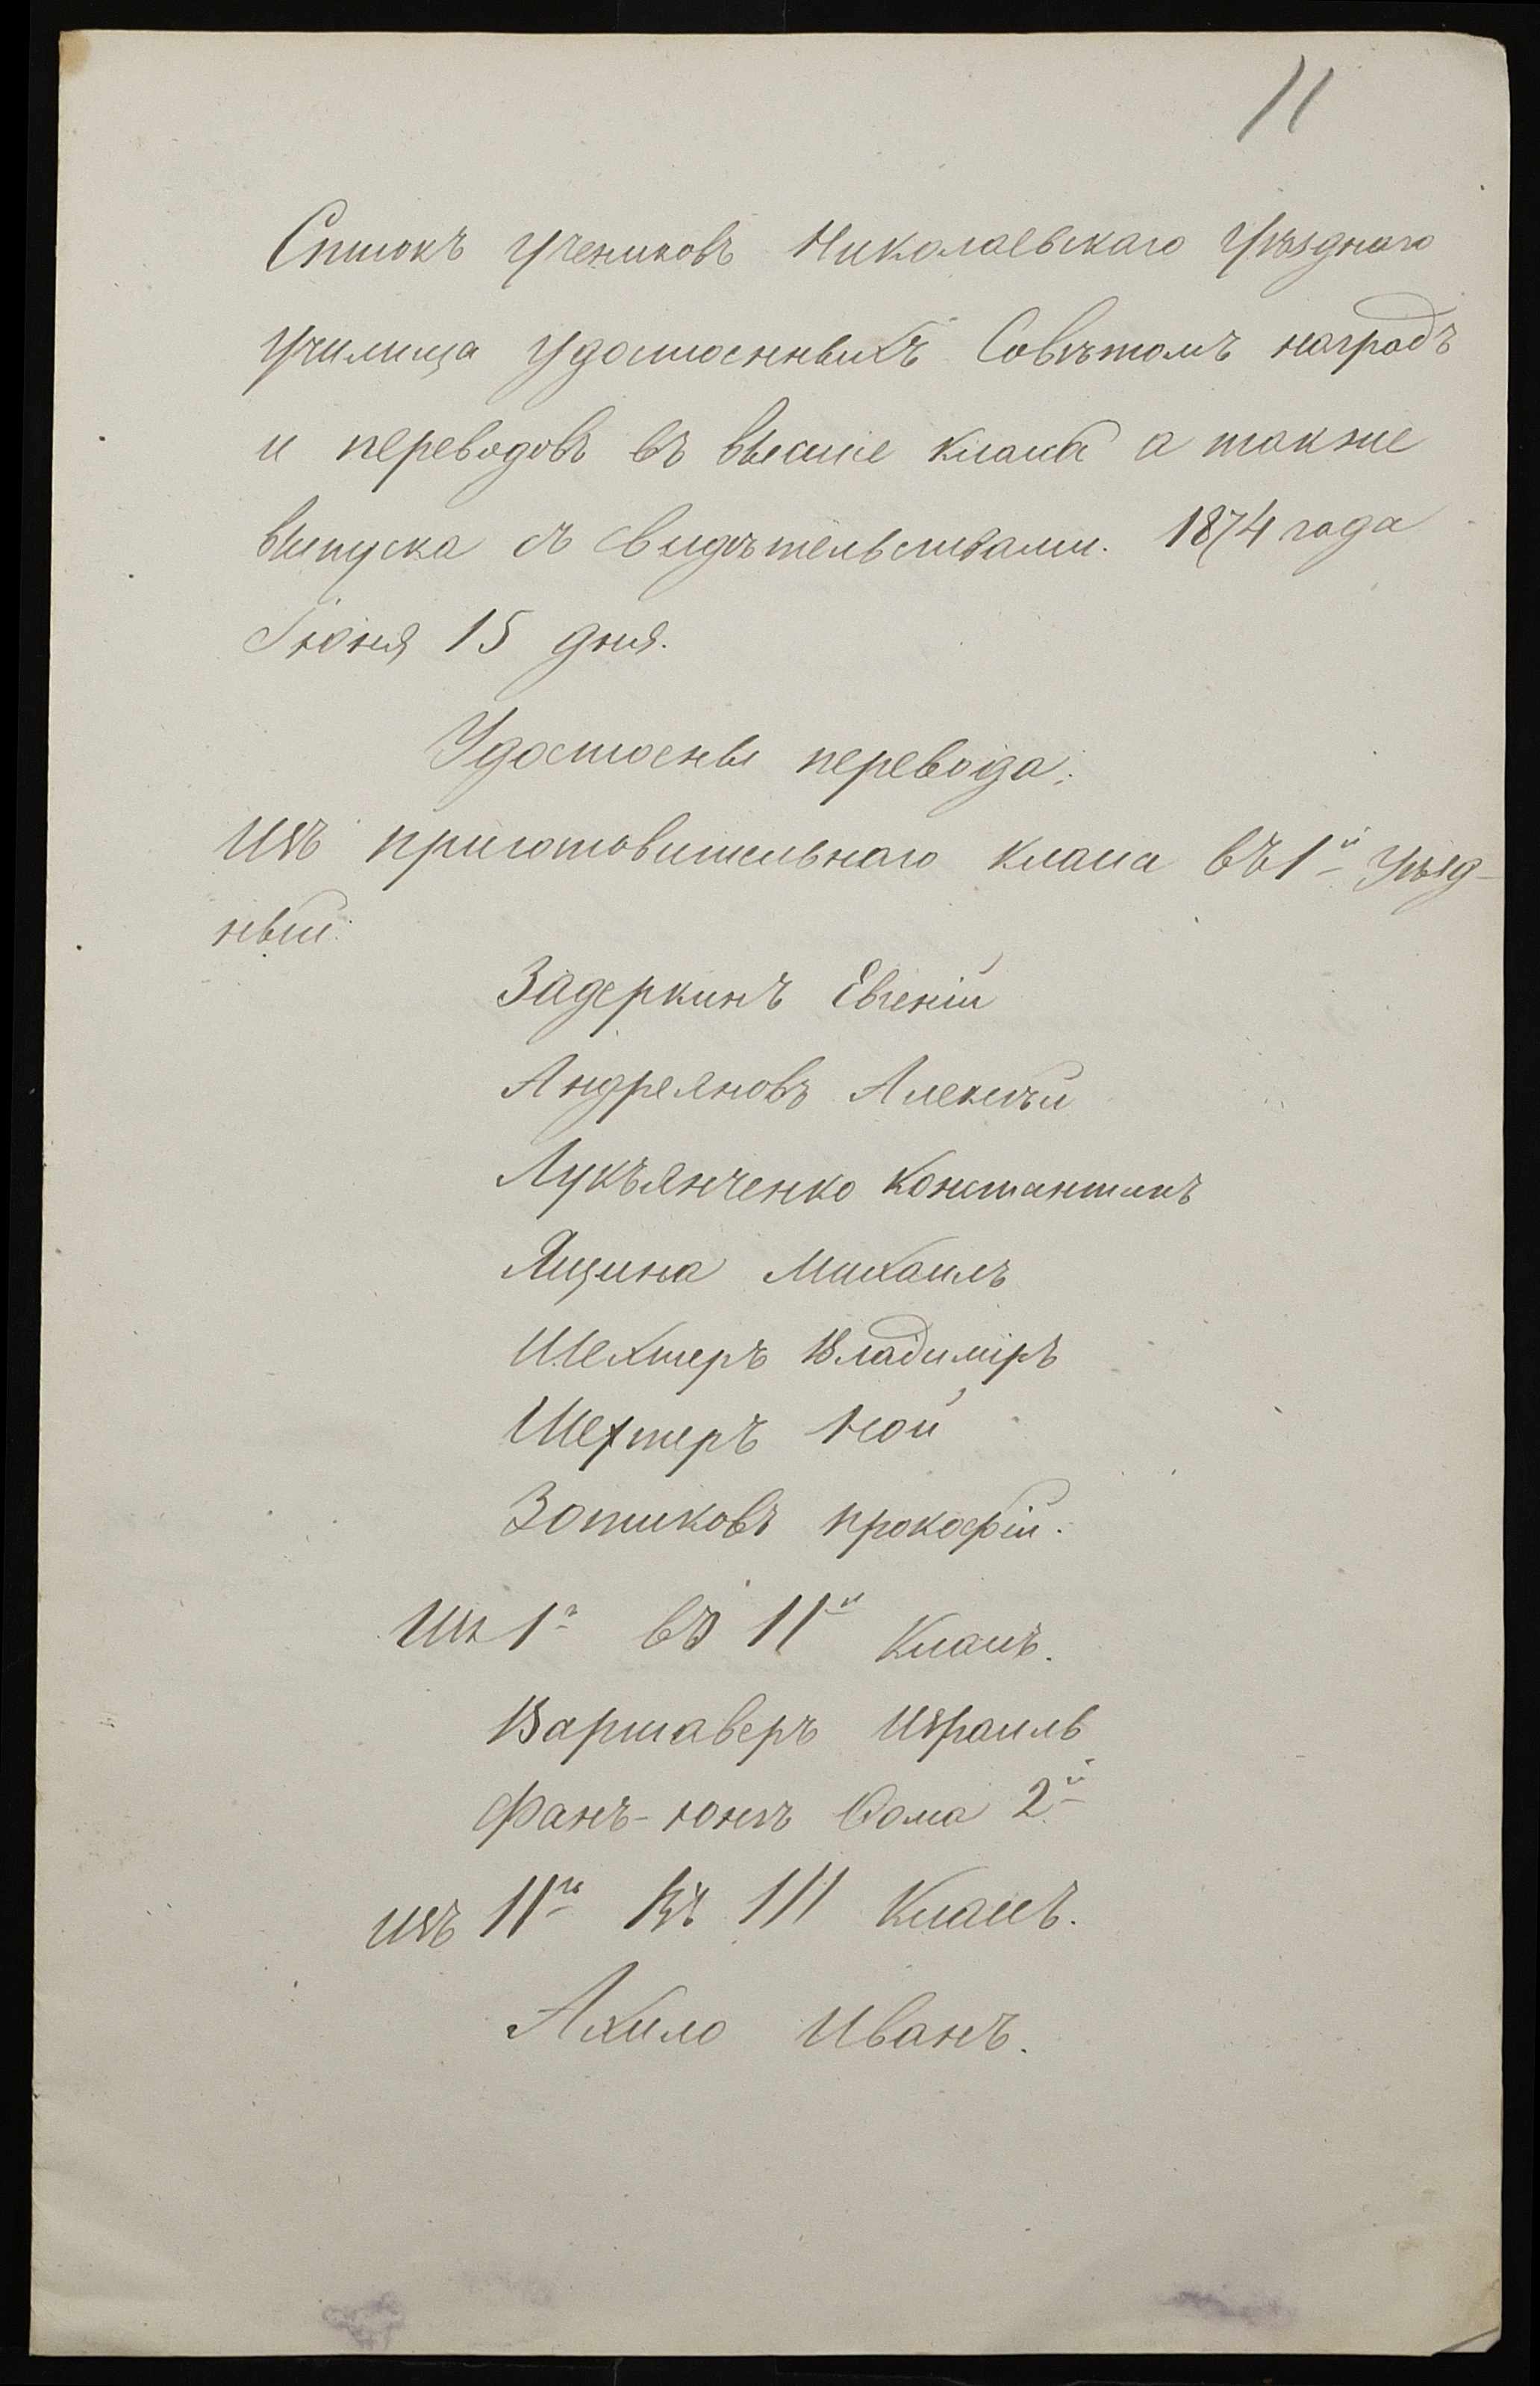 11
Списокъ учениковъ Николаевскаго Уѣзднаго
училища удостоенныхъ Совѣтомъ наградъ
и переводовъ въ высшіе классы а также
выпуска съ свидѣтельствами. 1874 года
Іюня 15 дня.
Удостоены перевода:
Изъ приготовительнаго класса въ 1й Уѣзд-
ный:
Задеркинъ Евгеній
Андреяновъ Алексѣй
Лукъянченко Константинъ
Ящина Михаилъ
Шехтеръ Владиміръ
Шехтеръ Ной
Зотиковъ Прокофій.
Изъ 1го въ 11й Классъ.
Варшаверъ Израиль
Фанъ-Юнгъ Ѳома 2й
изъ 11го въ 111 Классъ.
Ахило Иванъ.